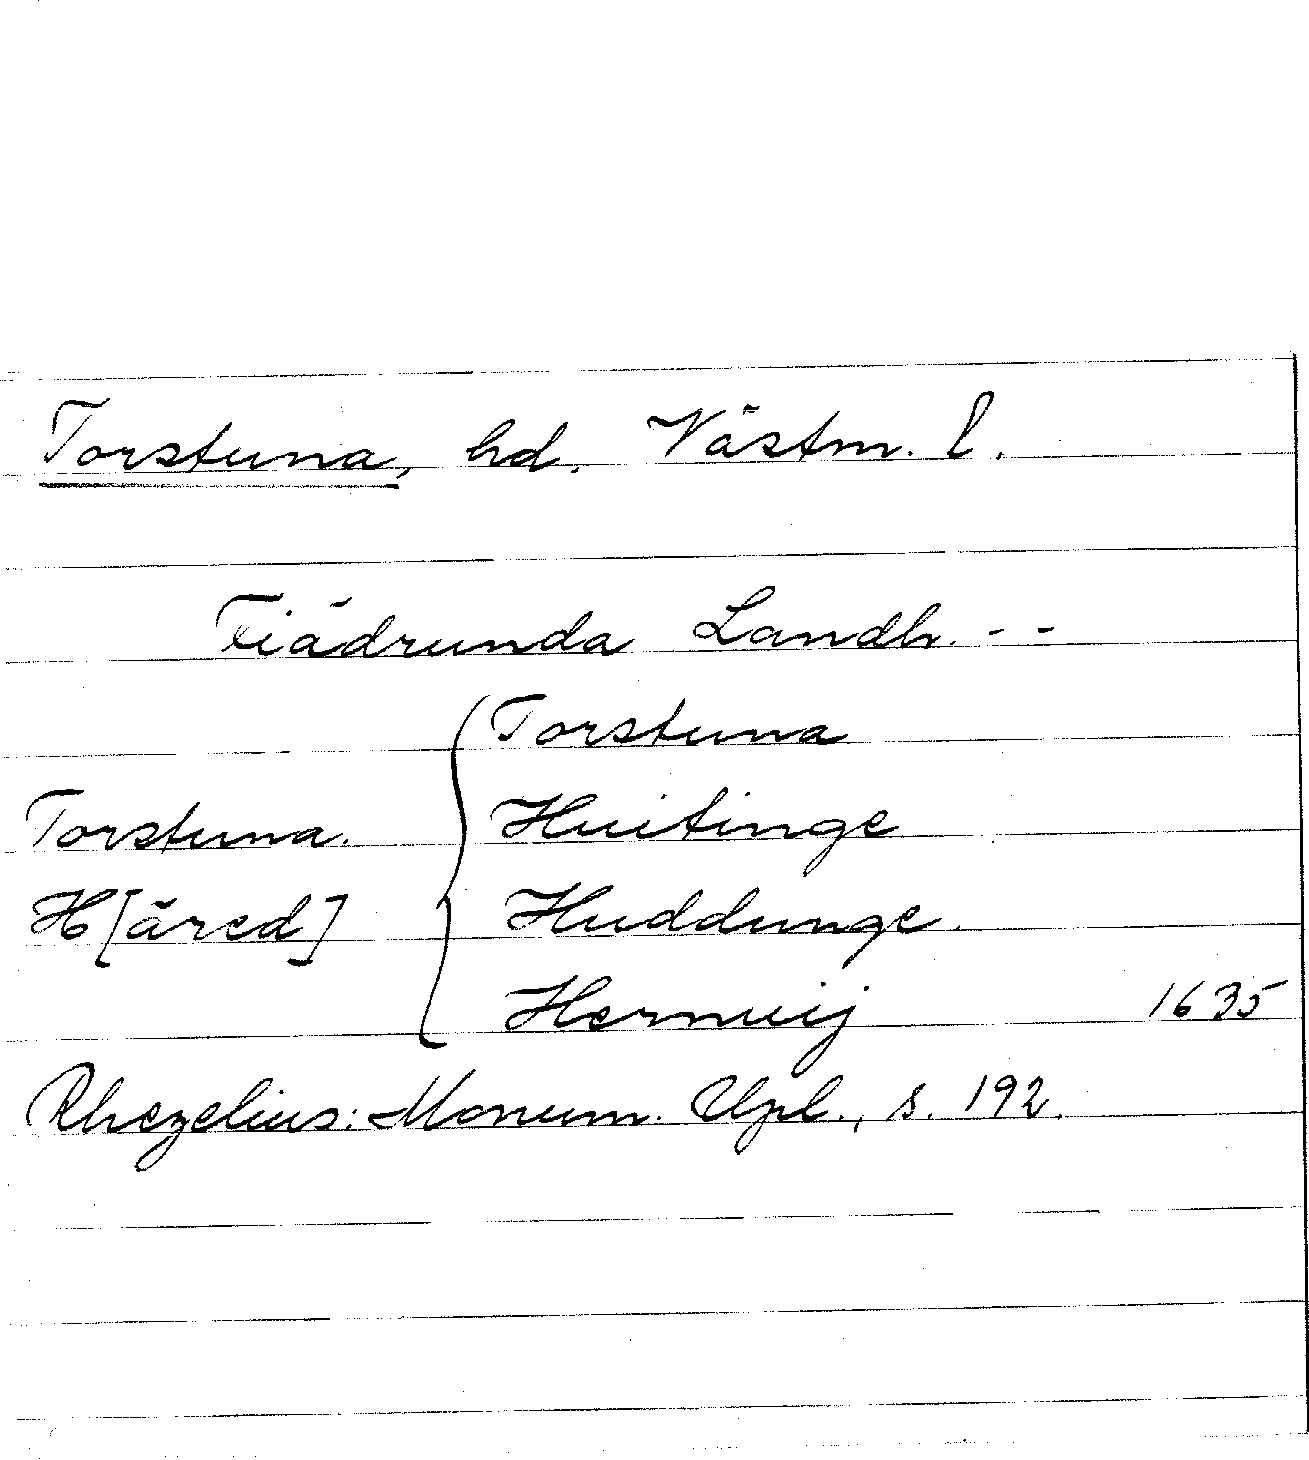 Torstuna, hd. Västm. l.
Fiädrunda Landh. - -
Torstuna
Huitinge
Torstuna.
H[äred]
Huddunge.
Hernuij 1635
Rhezelius: Monum. Upl., s. 192.